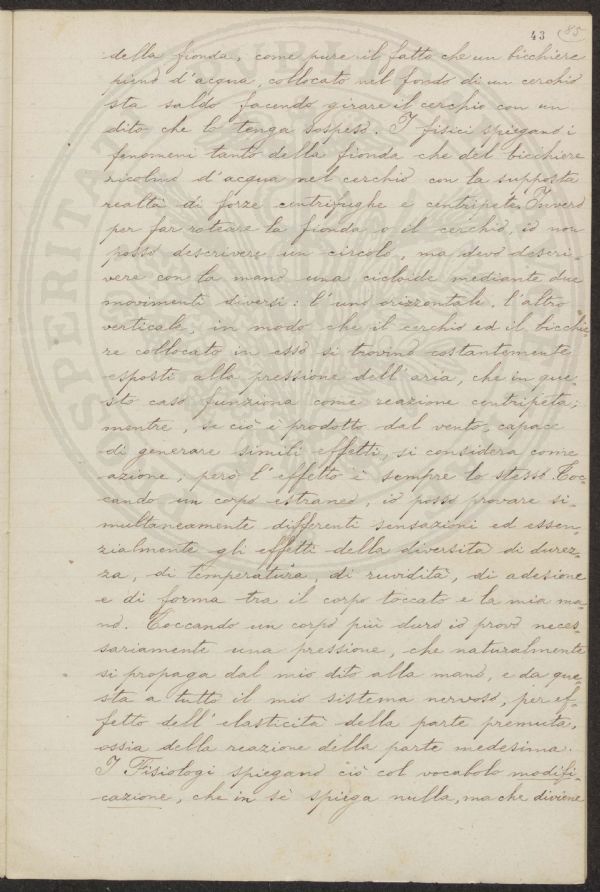 43 85
della fionda, come pure il fatto che un bicchiere
pieno d'acqua, collocato nel fondo di un cerchio
sta saldo facendo girare il cerchio con un
dito che lo tenga sospeso. I fisici spiegano i
fenomeni tanto della fionda che del bicchiere
ricolmo d'acqua nel cerchio con la supposta
realtà di forze centrifughe e centripete. Invero
per far roteare la fionda o il cerchio, io non
posso descrivere un circolo, ma devo descri-
vere con la mano una cicloide mediante due
movimenti diversi: l'uno orizzontale, l'altro
verticale, in modo che il cerchio ed il bicchie-
re collocato in esso si trovino costantemente
esposti alla pressione dell'aria, che in que-
sto caso funziona come reazione centripeta;
mentre, se ciò è prodotto dal vento, capace
di generare simili effetti, si considera come
azione; però l'effetto è sempre lo stesso. Toc-
cando un corpo estraneo, io posso provare si-
multaneamente differenti sensazioni ed essen-
zialmente gli effetti della diversità di durez-
za, di temperatura, di ruvidità, di adesione
e di forma tra il corpo toccato e la mia ma-
no. Toccando un corpo più duro io provo neces-
sariamente una pressione, che naturalmente
si propaga dal mio dito alla mano, e da que-
sta a tutto il mio sistema nervoso, per ef-
fetto dell'elasticità della parte premuta,
ossia della reazione della parte medesima.
I Fisiologi spiegano ciò col vocabolo modifi-
cazione, che in sè spiega nulla, ma che diviene